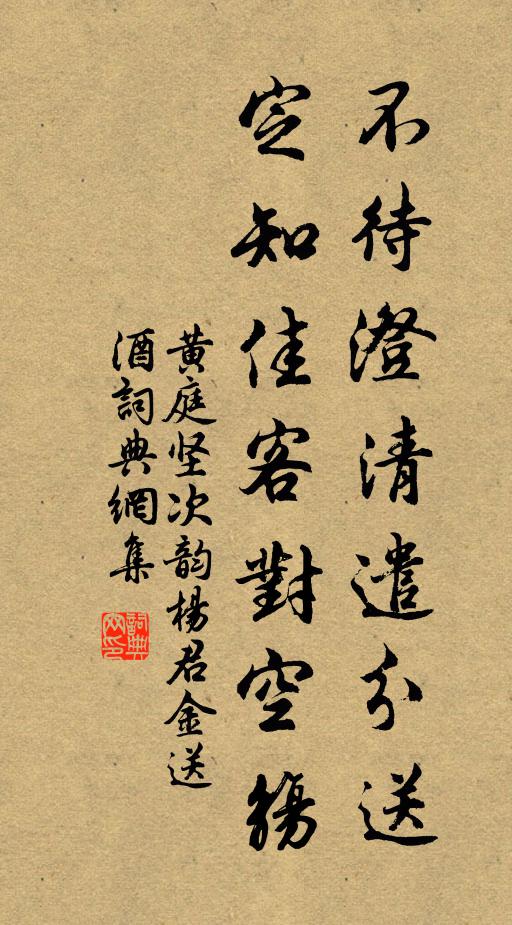 不待澄清遣分送
定知佳客對空觴
黄庭坚次韵楊君金送
酒詞典網集
詞典网印